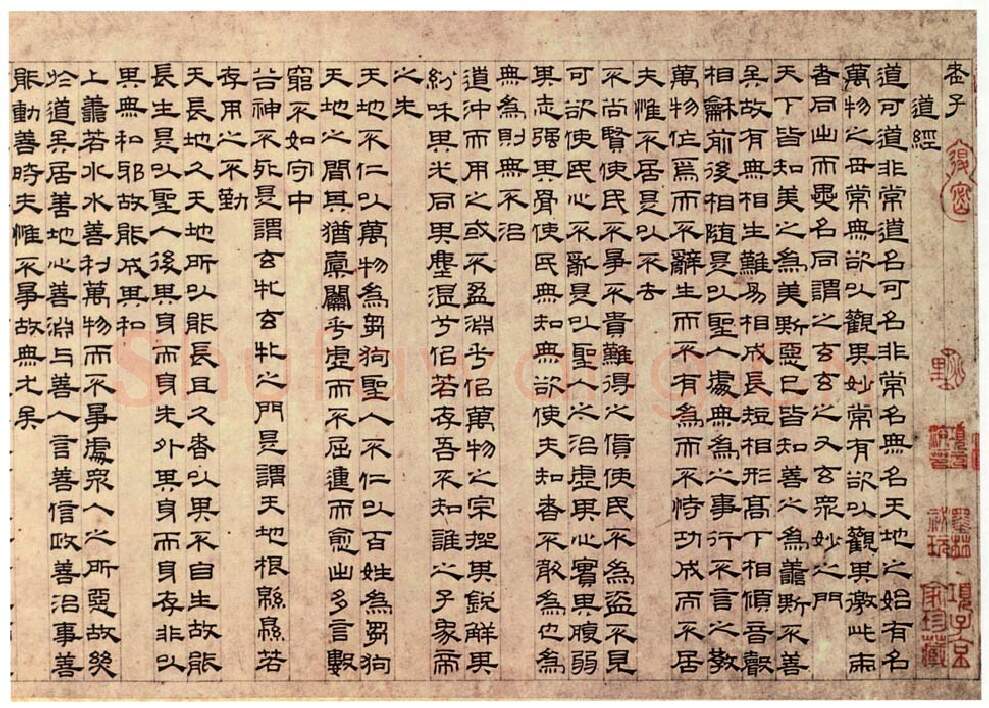 老子
道經
道可道非常道名可名非常名無名天地之始有名
萬物之母常無欲以觀其妙常有欲以觀其徼此兩
者同出而異名同謂之玄玄之又玄眾妙之門
天下皆知美之為美斯惡已皆知善之為善斯不善
矣故有無相生難易相成長短相形高下相傾音聲
相龢前後相隨是以聖人處無為之事行不言之教
萬物作焉而不辭生而不有為而不恃功成而不居
夫惟不居是以不去
不尚賢使民不爭不貴難得之貨使民不為盜不見
可欲使民心不亂是以聖人之治虛其心實其腹弱
其志强其骨使民無知無欲使夫知者不敢為也為
無為則無不治
道沖而用之或不盈淵乎似萬物之宗挫其銳解其
紛咊其光同其塵湛兮似若存吾不知誰之子象帝
之先
天地不仁以萬物為芻狗聖人不仁以百姓為芻狗
天地之間其猶橐籥乎虛而不屈動而愈出多言數
窮不如守中
谷神不死是謂玄牝玄牝之門是謂天地根緜緜若
存用之不勤
天長地久天地所以能長且久者以其不自生故能
長生是以聖人後其身而身先外其身而身存非以
其無私邪故能成其私
上善若水水善利萬物而不爭處眾人之所惡故幾
於道矣居善地心善淵與善人言善信政善治事善
能動善時夫惟不爭故無尤矣
項子京家珍藏
墨林祕玩
Shufawang.cn